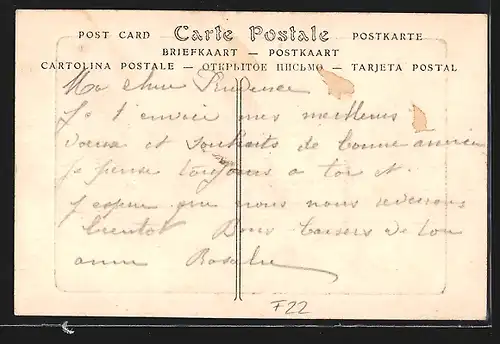 POST CARD Carte Postale POSTKARTE
BRIEFKAART — POSTKAART
CARTOLINA POSTALE — ОТКРЫТОЕ ПИСЬМО — TARJETA POSTAL
Ma chère Prudence
Je t'envoie mes meilleurs
voeux et souhaits de bonne année
Je pense toujours a toi et
J'espère que nous nous reverrons
bientot Bons baisers de ton
amie Rosalie
F22